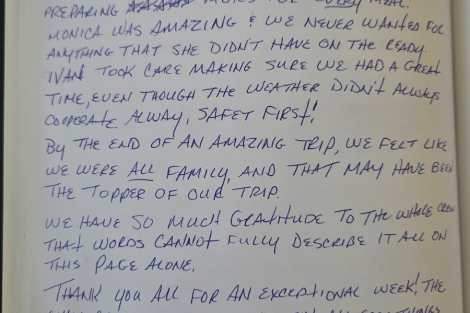 PREPARING MEALS FOR EVERY MEAL.
MONICA WAS AMAZING & WE NEVER WANTED FOR
ANYTHING THAT SHE DIDN'T HAVE ON THE READY.
IVAN TOOK CARE MAKING SURE WE HAD A GREAT
TIME, EVEN THOUGH THE WEATHER DIDN'T ALWAYS
COOPERATE ALWAY, SAFET FIRST!
BY THE END OF AN AMAZING TRIP, WE FELT LIKE
WE WERE ALL FAMILY, AND THAT MAY HAVE BEEN
THE TOPPER OF OUR TRIP.
WE HAVE SO MUCH GRATITUDE TO THE WHOLE CREW
THAT WORDS CANNOT FULLY DESCRIBE IT ALL ON
THIS PAGE ALONE.
THANK YOU ALL FOR AN EXCEPTIONAL WEEK! THE